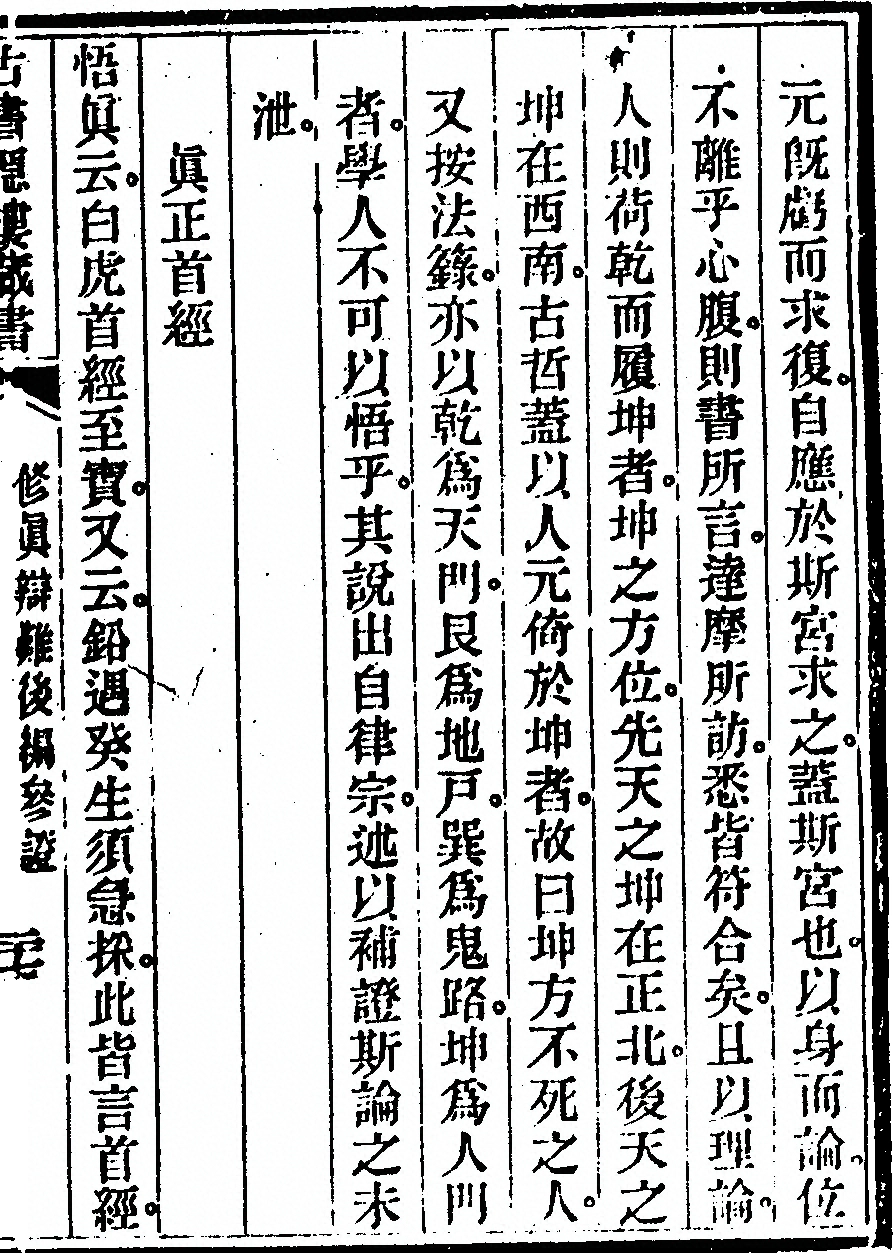 元旣虧而求復。自應於斯宮求之。蓋斯宮也。以身而論。位
不離乎心腹。則書所言。達摩所訪。悉皆符合矣。且以理論。
人則荷乾而履坤者。坤之方位。先天之坤在正北。後天之
坤在西南。古哲蓋以人元倚於坤者。故曰坤方不死之人。
又按法籙。亦以乾爲天門。艮爲地戸。巽爲鬼路。坤爲人門
者。學人不可以悟乎。其說出自律宗。述以補證斯論之未
泄。
眞正首經
悟眞云。白虎首經至寶。又云。鉛遇癸生須急採。此皆言首經。
古書隱樓藏書
修眞辯難後編參證